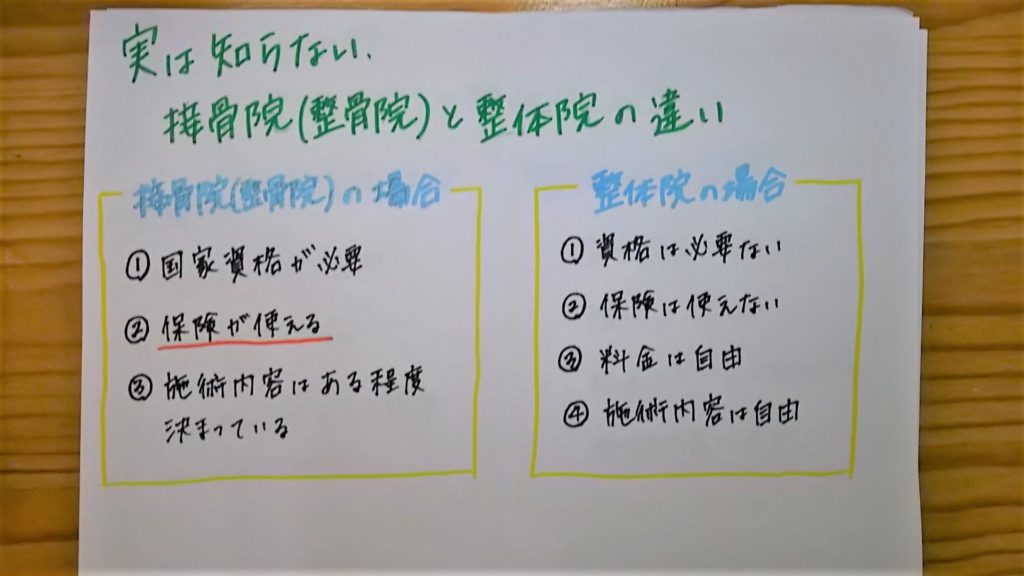 実は知らない、
接骨院(整骨院)と整体院の違い
接骨院(整骨院)の場合
① 国家資格が必要
② 保険が使える
③ 施術内容はある程度
決まっている
整体院の場合
① 資格は必要ない
② 保険は使えない
③ 料金は自由
④ 施術内容は自由